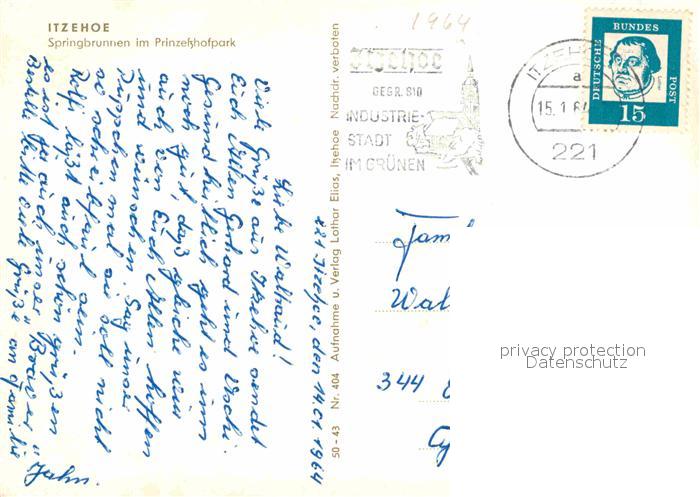 ITZEHOE
Springbrunnen im Prinzeßhofpark
1964
Itzehoe
GEGR. 810
INDUSTRIE-
STADT
IM GRÜNEN
ITZEHO
a
15.1.6
221
DEUTSCHE
BUNDES
POST
15
Nachdr. verboten
Aufnahme u. Verlag Lothar Elias, Itzehoe
Nr. 404
50-43
221 Itzehoe, den 14.01.1964
Liebe Waltraud!
Viele Grüße aus Itzehoe sendet
Euch Allen Gerhard und Uschi.
Gesundheitlich geht es uns
noch gut, daß gleiche wir
auch von Euch Allen hoffen
und wünschen. Sag unser
Püppchen mal sie soll nicht
so schreibfaul sein.
Rolfi läßt auch schön grüßen
es ist ja auch unser "Braver"
Bestelle bitte viele Grüße an Familie
Jahn.
Fam
Wal
344
privacy protection
Datenschutz